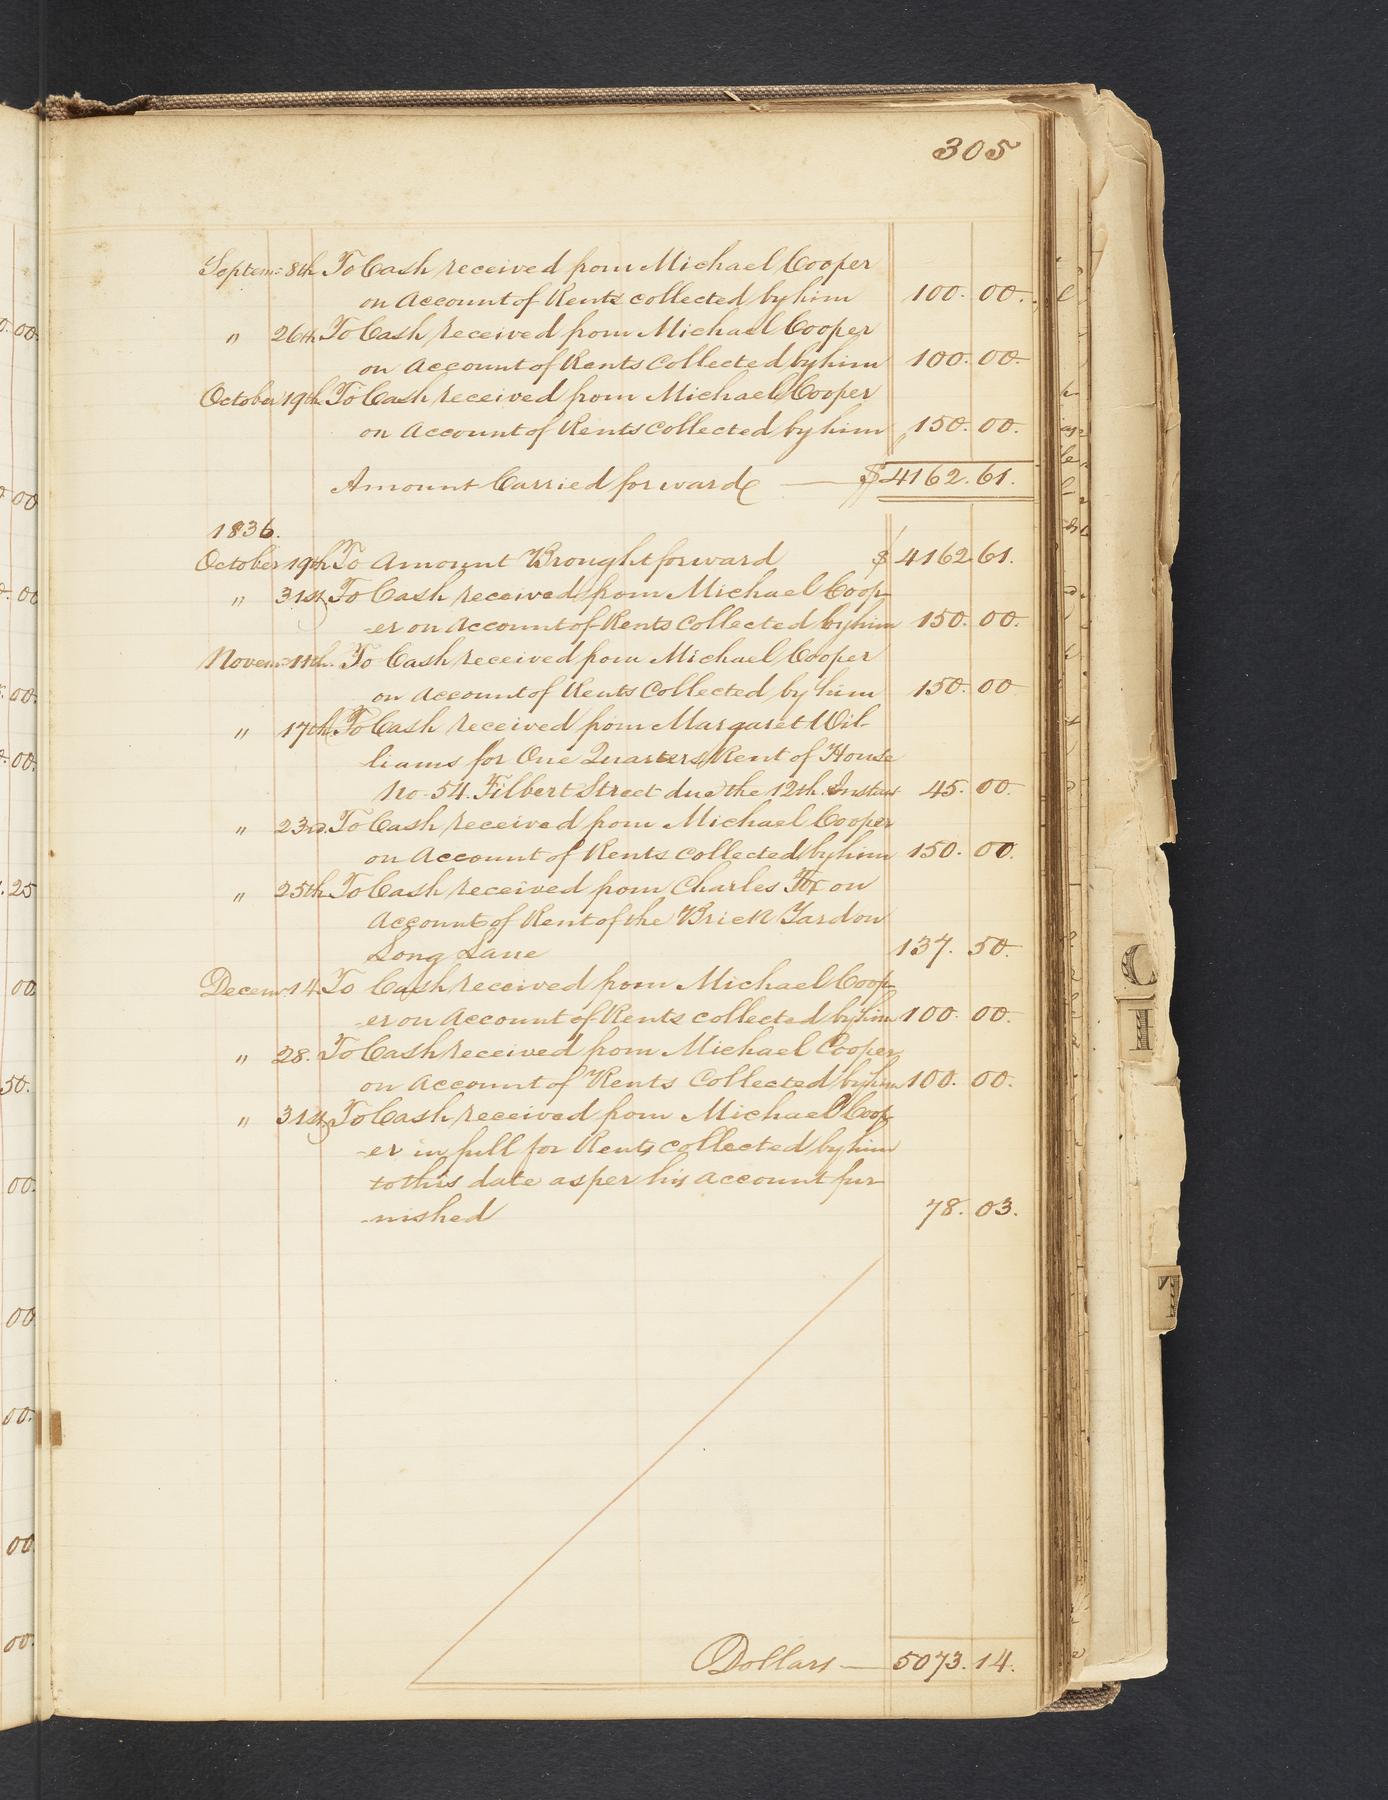 305
Septem: 8th To Cash received from Michael Cooper
on Account of Rents collected by him 100. 00.
" 26th To Cash received from Michael Cooper
on Account of Rents Collected by him 100. 00.
October 19th To Cash received from Michael Cooper
on Account of Rents collected by him 150. 00.
Amount Carried forward — $4162. 61.
1836.
October 19th To Amount Brought forward $4162 61.
" 31st To Cash received from Michael Coop-
-er on Account of Rents Collected by him 150. 00.
Novem: 11th. To Cash received from Michael Cooper
on Account of Rents Collected by him 150. 00
" 17th To Cash received from Margaret Wil-
liams for One Quarters Rent of House
No. 54. Filbert Street due the 12th. Instant 45. 00.
" 23rd. To Cash received from Michael Cooper
on Account of Rents collected by him 150. 00.
" 25th To Cash received from Charles Fox on
Account of Rent of the Brick Yard on
Long Lane 137. 50.
Decem: 14 To Cash received from Michael Coop-
-er on Account of Rents collected by him 100. 00.
" 28. To Cash received from Michael Cooper
on Account of Rents Collected by him 100. 00.
" 31st To Cash received from Michael Coop-
-er in full for Rents collected by him
to this date as per his account fur-
-nished 78. 03.
Dollars — 5073. 14.